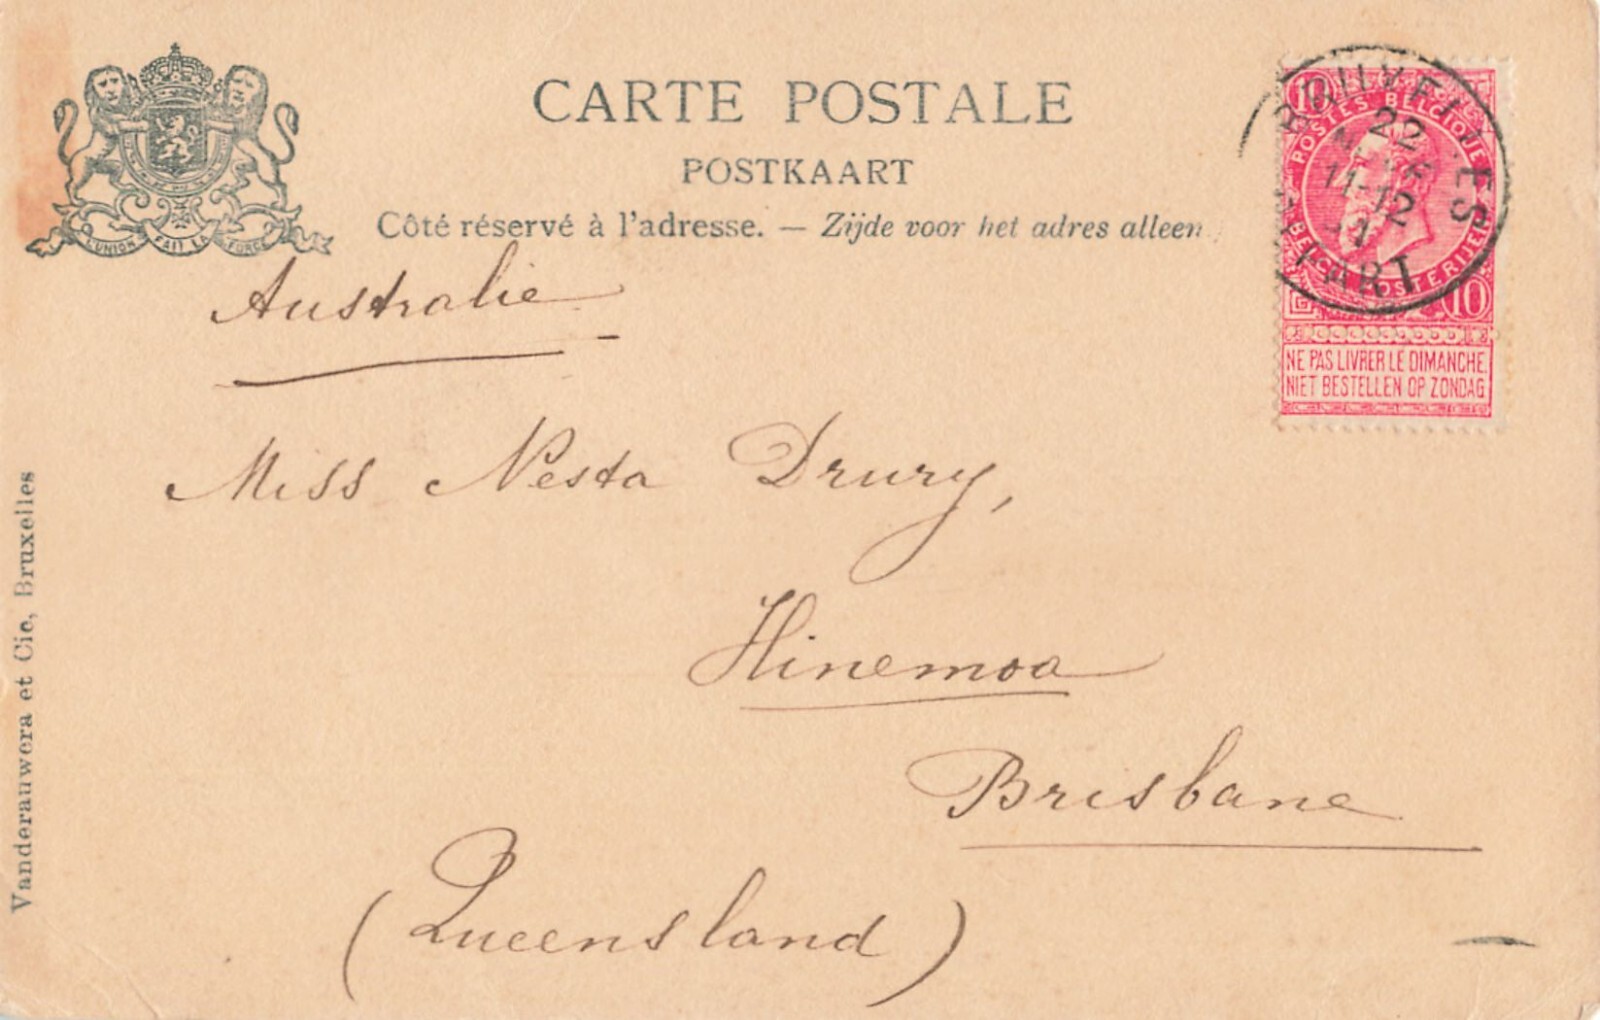 L'UNION FAIT LA FORCE
CARTE POSTALE
POSTKAART
Côté réservé à l'adresse. — Zijde voor het adres alleen
10
POSTES BELGIQUE
BELGIË POSTERIJEN
10
NE PAS LIVRER LE DIMANCHE.
NIET BESTELLEN OP ZONDAG
22
11-12
Australie
Miss Nesta Drury,
Hinemoa
Brisbane
(Queensland)
Vanderauwera et Cie, Bruxelles